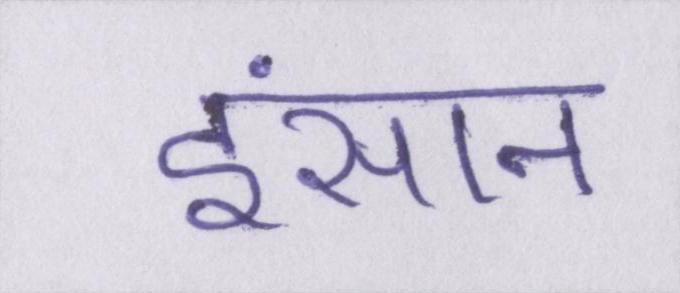 इंसान